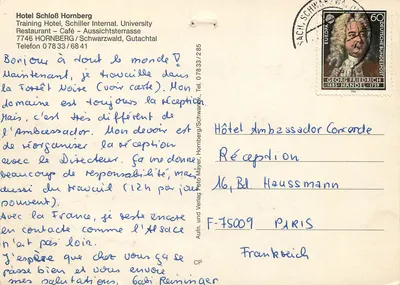 Hotel Schloß Hornberg
Training Hotel, Schiller Internat. University
Restaurant – Café – Aussichtsterrasse
7746 HORNBERG/Schwarzwald, Gutachtal
Telefon 0 78 33 / 68 41
Bonjour à tout le monde!
Maintenant, je travaille dans
la Forêt Noire (voir carte). Mon
domaine est toujours la réception
mais, c'est très différent de
l'Ambassador. Mon devoir est
de réorganiser la réception
avec le Directeur. Ça me donne
beaucoup de responsabilité, mais
aussi du travail (12h par jour
souvent).
Avec la France, je reste encore
en contacte comme l'Alsace
n'est pas loin.
J'espère que chez vous ça se
passe bien et vous envoie
mes salutations, Gabi Reininger
Auto- und Verlag Foto Mayer, Hornberg/Schwarzw., Tel. 0 78 33 / 2 85
CP
60
DEUTSCHE BUNDESPOST
GEORG FRIEDRICH
1685 HÄNDEL 1759
Hôtel Ambassador Concorde
Réception
16, Bd Haussmann
F-75009 PARIS
Frankreich